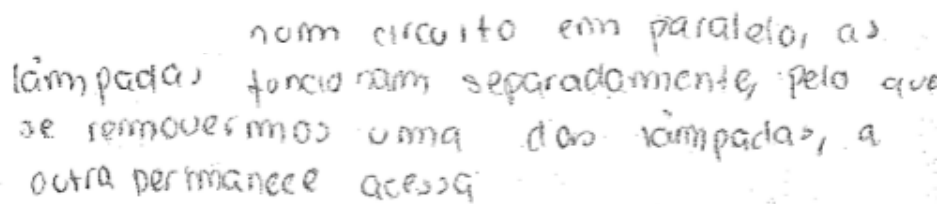 num circuito em paralelo, as
lâmpadas funcionam separadamente, pelo que
se removermos uma das lâmpadas, a
outra permanece acessa